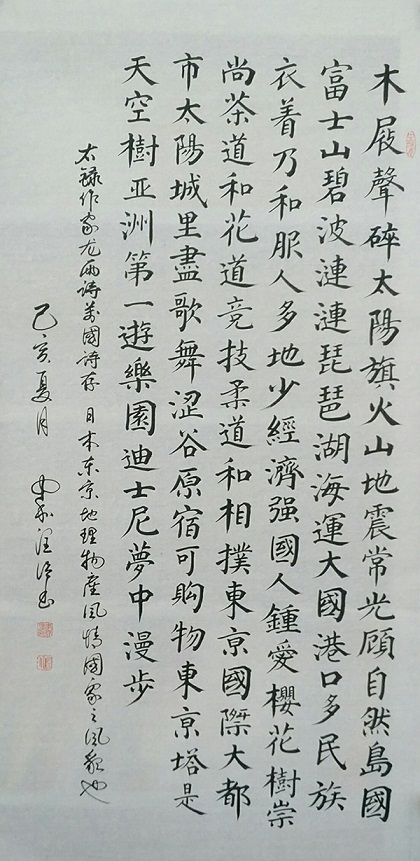 木屐聲碎太陽旗火山地震常光顧自然島國
富士山碧波漣漣琵琶湖海運大國港口多民族
衣着乃和服人多地少經濟强國人鍾愛櫻花樹崇
尚茶道和花道竞技柔道和相撲東京國際大都
市太陽城里盡歌舞澀谷原宿可购物東京塔是
天空樹亚洲第一遊樂園迪士尼夢中漫步
太禄作家龙雨诗万國诗存 日本东京地理物産风情國家之风貌也
己亥夏月